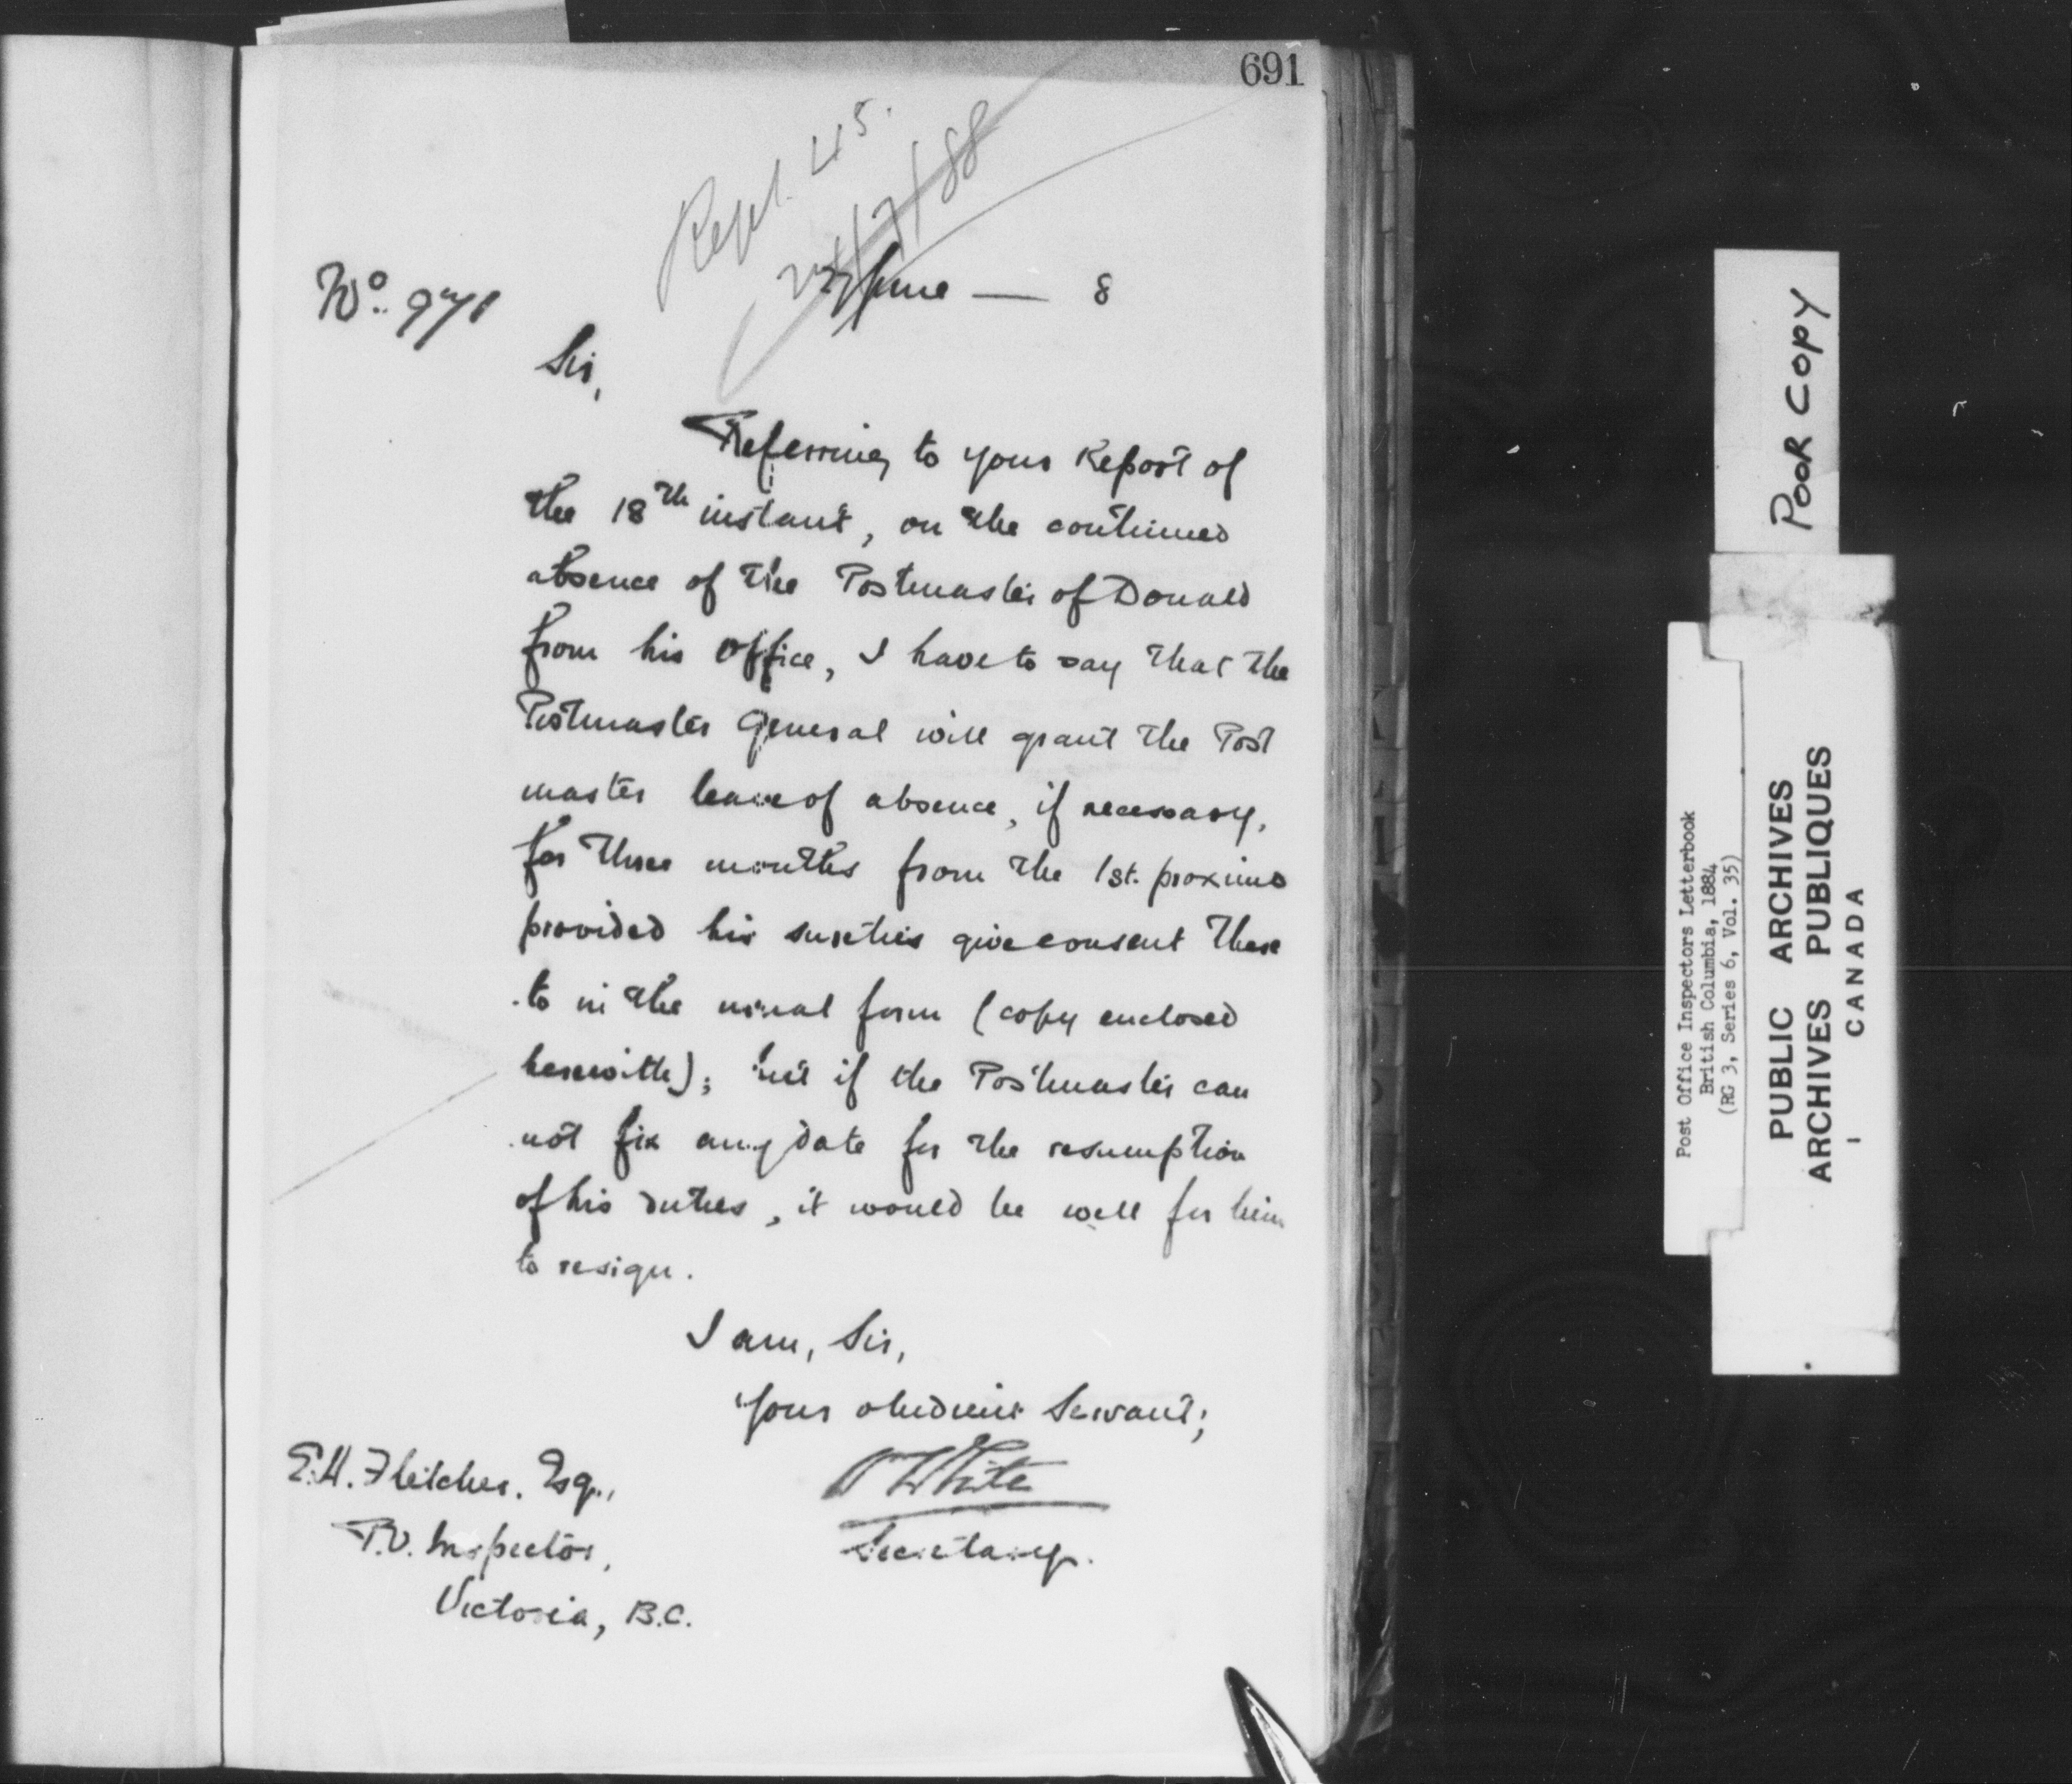 691
Rept. 45.
24/7/88
No. 971
27 June — 8
Sir,
Referring to your Report of
the 18th instant, on the continued
absence of the Postmaster of Donald
from his Office, I have to say that the
Postmaster General will grant the Post
master leave of absence, if necessary,
for three months from the 1st. proximo
provided his sureties give consent there
to in the usual form (copy enclosed
herewith); but if the Postmaster can
not fix any date for the resumption
of his duties, it would be well for him
to resign.
I am, Sir,
Your obedient Servant;
White
Secretary.
E.H. Fletcher. Esq.,
P.O. Inspector,
Victoria, B.C.
POOR COPY
Post Office Inspectors Letterbook
British Columbia, 1884
(RG 3, Series 6, Vol. 35)
PUBLIC ARCHIVES
ARCHIVES PUBLIQUES
CANADA